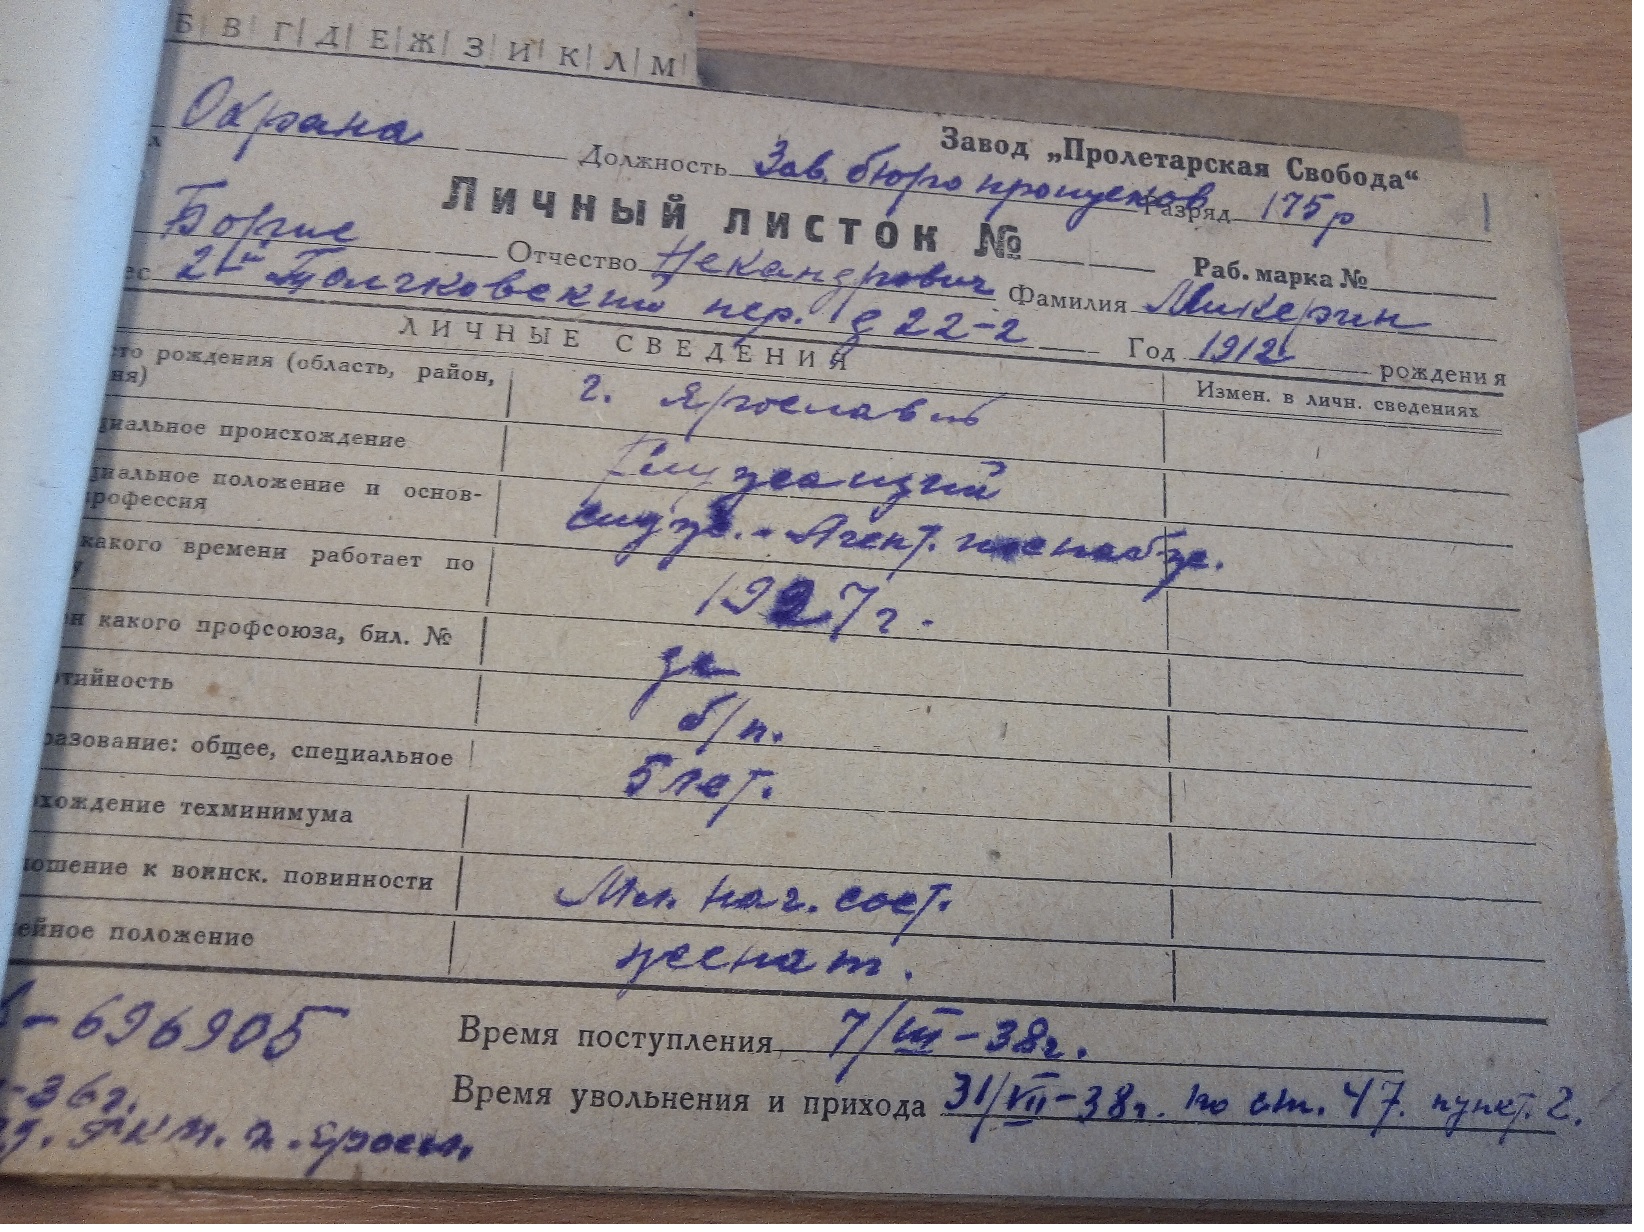 Б В Г Д Е Ж З И К Л М
Завод „Пролетарская Свобода“
Охрана Должность Зав. бюро пропусков Разряд 175р
Личный листок №
Раб. марка №
Борис Отчество Некандрович Фамилия Микерин
2й Толчковский пер. д 22-2 Год 1912 рождения
ЛИЧНЫЕ СВЕДЕНИЯ Измен. в личн. сведениях
сто рождения (область, район,
ня) г. Ярославль
иальное происхождение Служащий
иальное положение и основ-
профессия служ. - Агент. по снабж.
какого времени работает по
у 1927г.
н какого профсоюза, бил. № да
тийность б/п.
разование: общее, специальное 5 лет.
хождение техминимума
ношение к воинск. повинности Мл. нач. сост.
ейное положение женат.
-696905 Время поступления 7/III-38г.
-36г. Время увольнения и прихода 31/VII-38г. по ст. 47. пункт. 2.